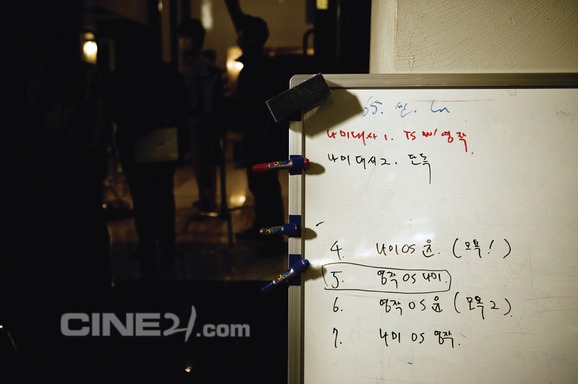 65.
나미대사 1. TS w/ 영작
나미대사 2. 단독
4. 나미 OS 윤. (모욕!)
5. 영작 OS 나미.
6. 영작 OS 윤 (모욕 2)
7. 나미 OS 영작.
CINE21.com